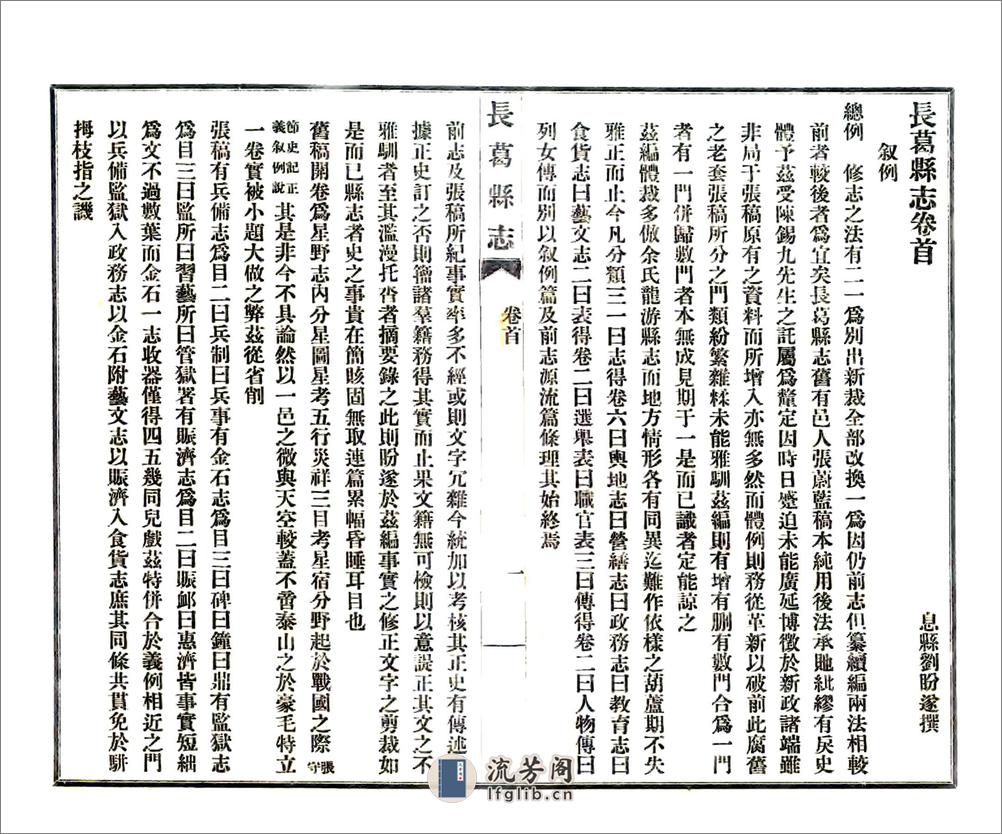 長葛縣志卷首
息縣劉盼遂撰
叙例
總例　修志之法有二一爲別出新裁全部改換一爲因仍前志但纂續編兩法相較
前者較後者爲宜矣長葛縣志舊有邑人張蔚藍稿本純用後法承訑紕繆有戾史
體予茲受陳錫九先生之託屬爲釐定因時日蹙迫未能廣延博徵於新政諸端雖
非局于張稿原有之資料而所增入亦無多然而體例則務從革新以破前此腐舊
之老套張稿所分之門類紛繁雜糅未能雅馴茲編則有增有删有數門合爲一門
者有一門併歸數門者本無成見期于一是而已識者定能諒之
茲編體裁多倣余氏龍游縣志而地方情形各有同異迄難作依樣之葫蘆期不失
雅正而止今凡分類三一曰志得卷六曰輿地志曰營繕志曰政務志曰教育志曰
食貨志曰藝文志二曰表得卷二曰選舉表曰職官表三曰傳得卷二曰人物傳曰
列女傳而別以叙例篇及前志源流篇條理其始終焉
長葛縣志
卷首
一
前志及張稿所紀事實率多不經或則文字冗雜今統加以考核其正史有傳述者
據正史訂之否則籀諸羣籍務得其實而止果文籍無可檢則以意諟正其文之不
雅馴者至其濫漫托沓者摘要錄之此則盼遂於茲編事實之修正文字之剪裁如
是而已縣志者史之事貴在簡賅固無取連篇累幅昏睡耳目也
舊稿開卷爲星野志內分星圖星考五行災祥三目考星宿分野起於戰國之際張守
節史記正義叙例說其是非今不具論然以一邑之微與天空較蓋不啻泰山之於豪毛特立
一卷實被小題大做之弊茲從省削
張稿有兵備志爲目二曰兵制曰兵事有金石志爲目三曰碑曰鐘曰鼎有監獄志
爲目三曰監所曰習藝所曰管獄署有賑濟志爲目二曰賑卹曰惠濟皆事實短絀
爲文不過數葉而金石一志收器僅得四五幾同兒戲茲特併合於義例相近之門
以兵備監獄入政務志以金石附藝文志以賑濟入食貨志庶其同條共貫免於駢
拇枝指之譏
流芳閣
lfglib.cn